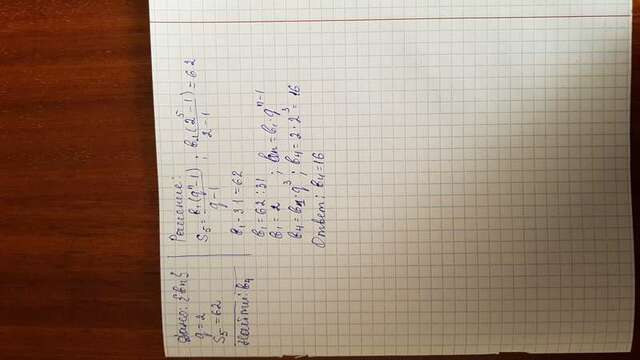 Дано: {bn}
q = 2
S₅ = 62
Найти: b₄
Решение:
S₅ = b₁(qⁿ-1)/q-1 ; b₁(2⁵-1)/2-1 = 62
b₁ · 31 = 62
b₁ = 62 : 31
b₁ = 2 ; bn = b₁ · qⁿ⁻¹
b₄ = b₁ · q³ ; b₄ = 2 · 2³ = 16
Ответ: b₄ = 16